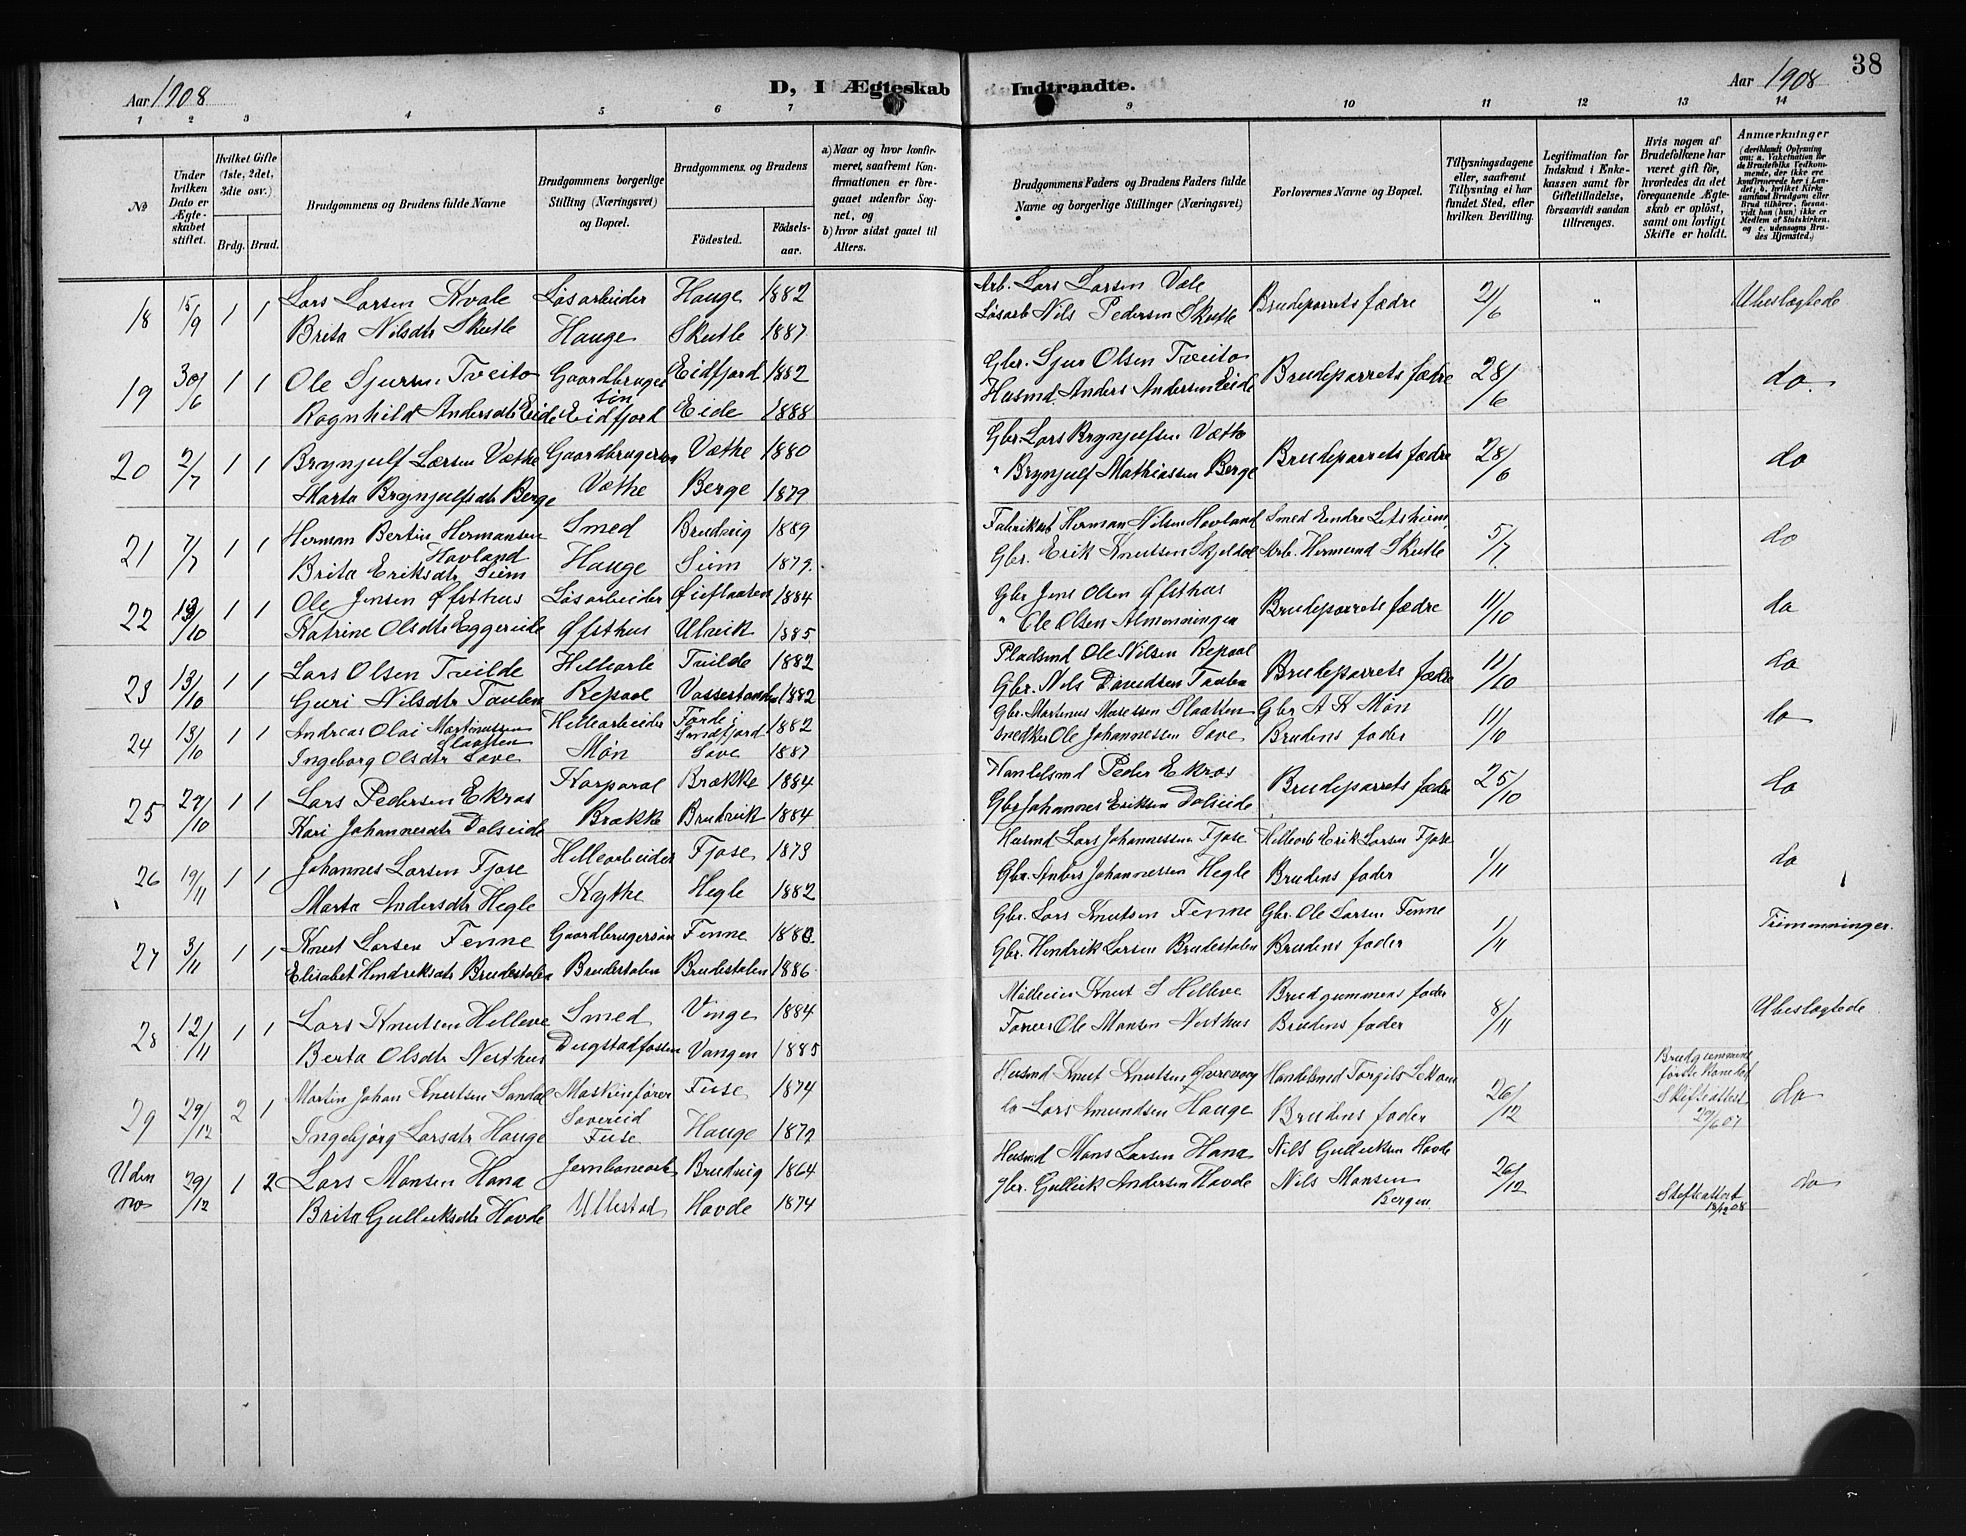 38
Aar 1908
D, I Ægteskab Indtraadte.
Aar 1908
1 2 3 4 5 6 7 9 10 11 12 13 14
No
Under hvilken Dato er Ægteskabet stiftet.
Hvilket Gifte (1ste, 2det, 3die osv.)
Brdg. Brud.
Brudgommens og Brudens fulde Navne
Brudgommens borgerlige Stilling (Næringsvei) og Bopæl.
Brudgommens og Brudens
Födested.
Födselsaar.
a) Naar og hvor konfirmeret, saafremt Konfirmationen er foregaaet udenfor Sognet, og
b) hvor sidst gaaet til Alters.
Brudgommens Faders og Brudens Faders fulde Navne og borgerlige Stillinger (Næringsvei)
Forlovernes Navne og Bopæl.
Tillysningsdagene eller, saafremt Tillysning ei har fundet Sted, efter hvilken Bevilling.
Legitimation for Indskud i Enkekassen samt for Giftetilladelse, forsaavidt saadan tiltrænges.
Hvis nogen af Brudefolkene har været gift för, hvorledes da det foregaaende Ægteskab er oplöst, samt om lovligt Skifte er holdt.
Anmærkninger
18 15/9 1 1 Lars Larsen Kvale Løsarbeider Hauge 1882 Arb. Lars Larsen Vale Brudeparrets fædre 21/6 " Ubeslægtede
Brita Nilsdtr Skutle Hauge Skutle 1887 Løsarb Nils Pedersen Skutle
19 30/6 1 1 Ole Sjursen Tveito Gaardbruger søn Eidfjord 1882 Gbr. Sjur Olsen Tveito Brudeparrets fædre 28/6 do
Ragnhild Andersdtr Eide Eidfjord Eide 1888 Husmd Anders Andersen Eide
20 2/7 1 1 Brynjulf Larsen Væthe Gaardbrugersøn Væthe 1880 Gbr. Lars Brynjulfsen Væthe Brudeparrets fædre 28/6 do
Marta Brynjulfsdtr Berge Væthe Berge 1879 " Brynjulf Mathiassen Berge
21 7/7 1 1 Herman Bertin Hermansen Hovland Smed Brudvig 1889 Fabrikarb Herman Nilsen Hovland Smed Endre 5/7 do
Brita Eriksdtr Siim Hauge Siim 1879. Gbr. Erik Knutsen Skjeldal Arb. Hermund Skutle
22 13/10 1 1 Ole Jensen Øfsthus Løsarbeider 1884 Gbr Jens Olsen Øfsthus Brudeparrets fædre 11/10 do
Katrine Olsdtr Eggereide Øfsthus Ulvik 1885 " Ole Olsen Almenningen
23 13/10 1 1 Lars Olsen Tvilde Hellearb Tvilde 1882 Pladsmd Ole Nilsen Repaal Brudeparrets fædre 11/10 do
Guri Nilsdtr Taulen Repaal 1882 Gbr. Nils Davidsen
24 13/10 1 1 Andreas Olai Martinussen Slaatten Hellearbeider Førde i Søndfjord 1882 Gbr. Martinus Mosessen Slaatten Gbr A K Møn 11/10 do
Ingeborg Olsdtr Sove Møn Sove 1887 Snedker Ole Johannessen Sove Brudens fader
25 27/10 1 1 Lars Pedersen Ekras Korporal Brække 1884 Handelsmd Peder Ekras Brudeparrets fædre 25/10 do
Kari Johannesdtr Dalseide Brække Brudvik 1884 Gbr Johannes Eriksen Dalseide
26 19/11 1 1 Johannes Larsen Fjose Hellearbeider Fjose 1879 Husmd Lars Johannessen Fjose Hellearb Erik Larsen Fjose 1/11 do
Marta Andersdtr Hegle Kythe Hegle 1882 Gbr. Anders Johannessen Hegle Brudens fader
27 3/11 1 1 Knut Larsen Fenne Gaardbrugersøn Fenne 1883 Gbr. Lars Knutsen Fenne Gbr. Ole Larsen Fenne 1/11 Trimenninger.
Elisabet Hendriksdtr Brudestolen Brudestolen Brudestolen 1886 Gbr. Hendrik Larsen Brudestolen Brudens fader
28 12/11 1 1 Lars Knutsen Helleve Smed Vinge 1884 Knut S Helleve Brudgommens fader 8/11 Ubeslægtede
Berta Olsdtr Nesthus Dugstadfossen Vangen 1885 Ole Monsen Nesthus Brudens fader
29 29/12 2 1 Martin Johan Knutsen Sandal Maskinefører Fuse 1874 Husmd Knut Knutsen Handelsmd Torgils 26/12 Brudgommens første Kone død Skifteattest 27/6 07 do
Ingebjørg Larsdtr Hauge Sævereid Fuse Hauge 1879 do Lars Amundsen Hauge Brudens fader
Uden no 29/12 1 2 Lars Monsen Hana Jernbanearb Brudvig 1864 Husmd Mons Larsen Hana Nils Gulleiksen Hovde 26/12 Skifteattest 18/12 08 do
Brita Gulleiksdtr Hovde Ullestad Hovde 1874 Gbr. Gulleik Andersen Hovde Nils Monsen Bergen.